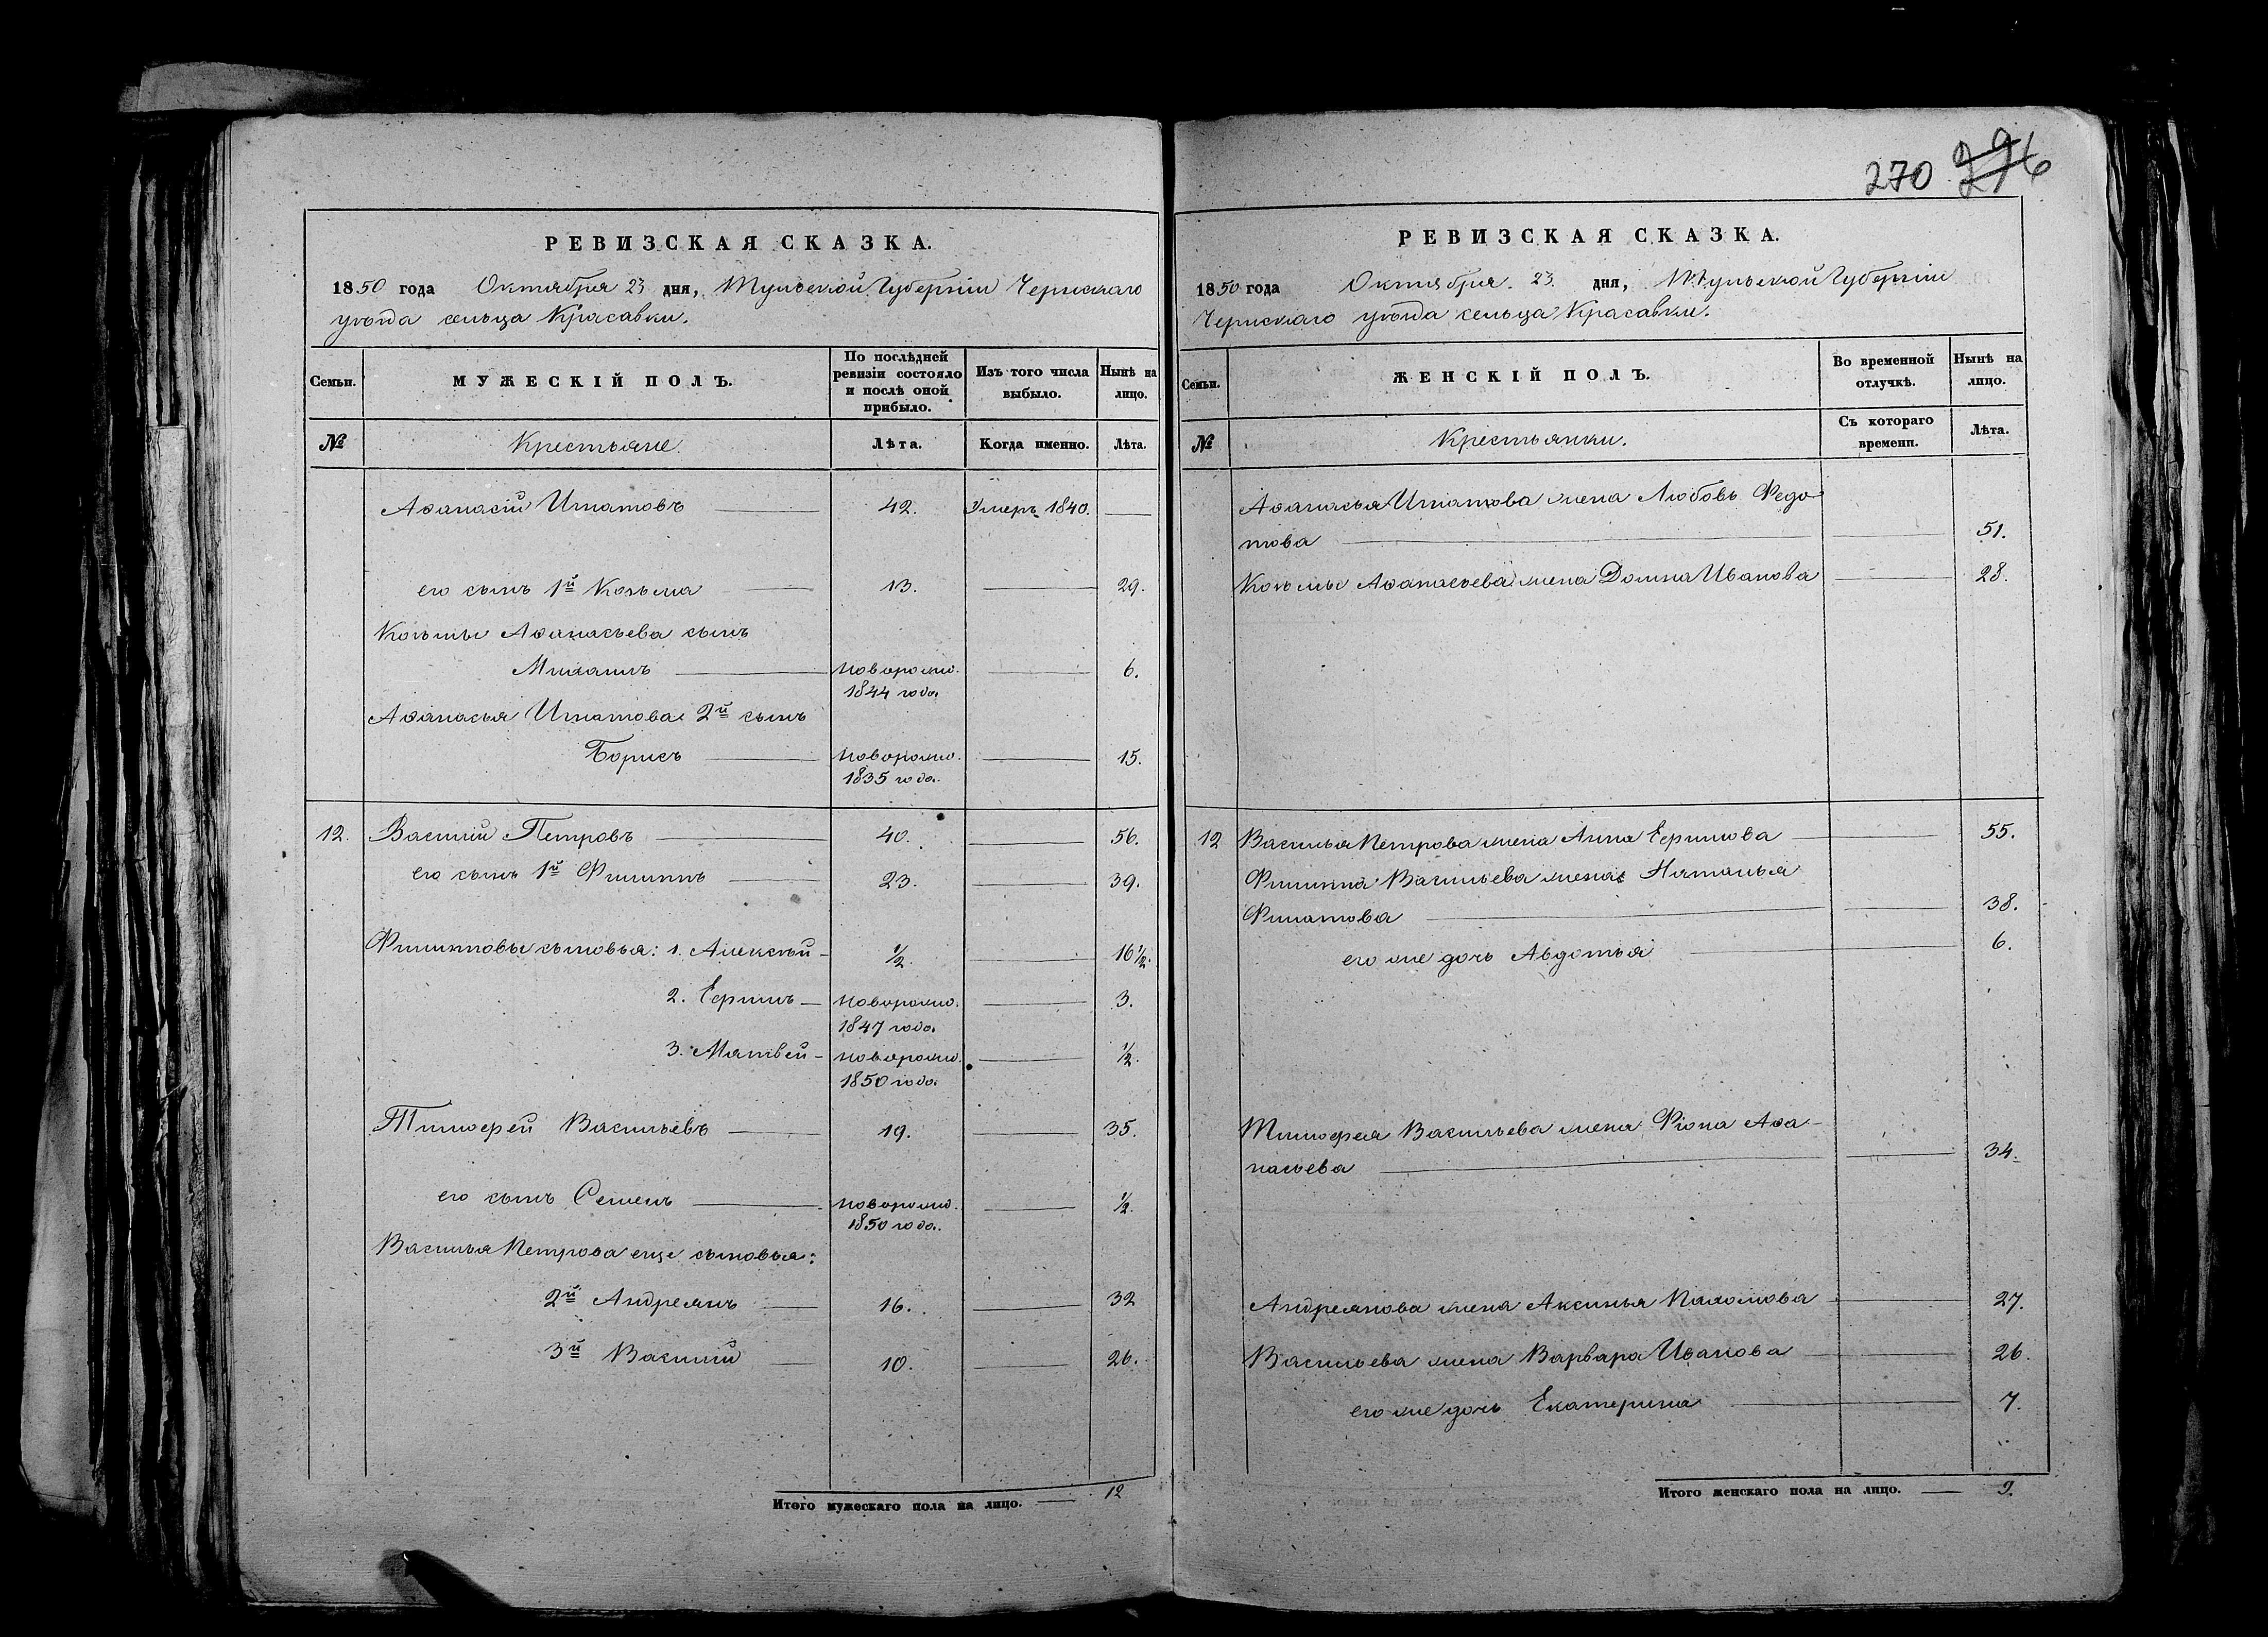 270 296
РЕВИЗСКАЯ СКАЗКА.
1850 года Октября 23 дня, Тульской Губерніи Чернскаго
уѣзда сельца Красавки.
Семьи.
МУЖЕСКІЙ ПОЛЪ.
По послѣдней
ревизіи состояло
и послѣ оной
прибыло.
Изъ того числа
выбыло.
Нынѣ на
лицо.
№
Крестьяне.
Лѣта.
Когда именно.
Лѣта.
Аѳанасій Игнатовъ 42. Умеръ 1840.
его сынъ 1й Козьма 13. 29.
Козьмы Аѳанасьева сынъ
Михаилъ новорожд. 6.
1844 года
Аѳанасья Игнатова 2й сынъ
Борисъ новорожд. 15.
1835 года.
12. Василий Петровъ 40. 56.
его сынъ 1й Филиппъ 23. 39.
Филипповы сыновья: 1. Алексѣй 1/2. 16 1/2.
2. Ефимъ новорожд. 3.
1847 года.
3. Матвей новорожд. 1/2.
1850 года.
Тимофей Васильевъ 19. 35.
его сынъ Семенъ новорожд. 1/2.
1850 года.
Василья Петрова еще сыновья:
2й Андреянъ 16. 32
3й Василий 10. 26.
Итого мужескаго пола на лицо. 12
РЕВИЗСКАЯ СКАЗКА.
1850 года Октября 23 дня, Тульской Губерніи
Чернскаго уѣзда сельца Красавки.
Семьи.
ЖЕНСКІЙ ПОЛЪ.
Во временной
отлучкѣ.
Нынѣ на
лицо.
№
Крестьянки.
Съ котораго
времени.
Лѣта.
Аѳанасья Игнатова жена Любовь Федо-
това 51.
Козьмы Аѳанасьева жена Домна Иванова 28.
12 Василья Петрова жена Анна Ефимова 55.
Филиппа Васильева жена Наталья
Филатова 38.
его же дочь Авдотья 6.
Тимофея Васильева жена Фіона Аѳа-
насьева 34.
Андреянова жена Аксинья Пахомова 27.
Васильева жена Варвара Иванова 26.
его же дочь Екатерина 7.
Итого женскаго пола на лицо. 9.